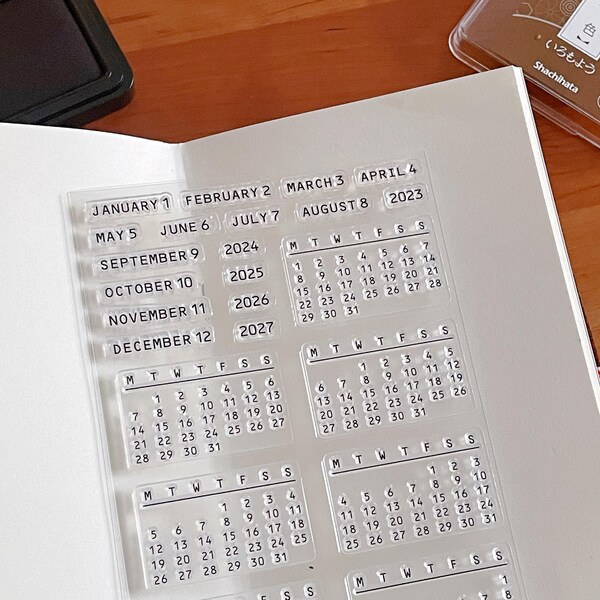 色
いろもよう
Shachihata
JANUARY 1 FEBRUARY 2 MARCH 3 APRIL 4
MAY 5 JUNE 6 JULY 7 AUGUST 8 2023
SEPTEMBER 9 2024
OCTOBER 10 2025
NOVEMBER 11 2026
DECEMBER 12 2027
M T W T F S S
1 2 3 4 5 6 7
8 9 10 11 12 13 14
15 16 17 18 19 20 21
22 23 24 25 26 27 28
29 30 31
M T W T F S S
1 2 3 4 5 6
7 8 9 10 11 12 13
14 15 16 17 18 19 20
21 22 23 24 25 26 27
28 29 30 31
M T W T F S S
1 2 3 4 5
6 7 8 9 10 11 12
13 14 15 16 17 18 19
20 21 22 23 24 25 26
27 28 29 30 31
M T W T F S S
1 2 3 4
5 6 7 8 9 10 11
12 13 14 15 16 17 18
19 20 21 22 23 24 25
26 27 28 29 30 31
M T W T F S S
1 2 3
4 5 6 7 8 9 10
11 12 13 14 15 16 17
18 19 20 21 22 23 24
25 26 27 28 29 30 31
F S S
M T W T F S S
1
8